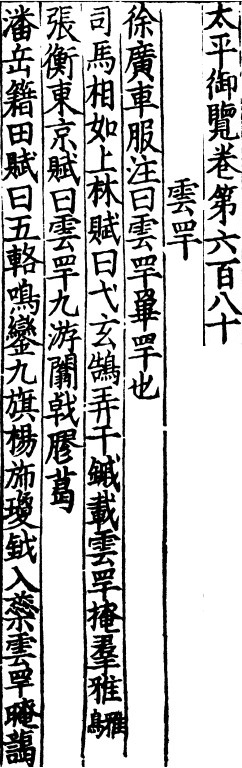 太平御覽卷第六百八十
雲罕
徐廣車服注曰雲罕罼罕也
司馬相如上林賦曰弋玄鵠弄干鏚載雲罕掩羣雅鵶
張衡東京賦曰雲罕九游闟戟膠葛
潘岳籍田賦曰五輅鳴鑾九旗楊斾瓊鈘入蘂雲罕晻藹